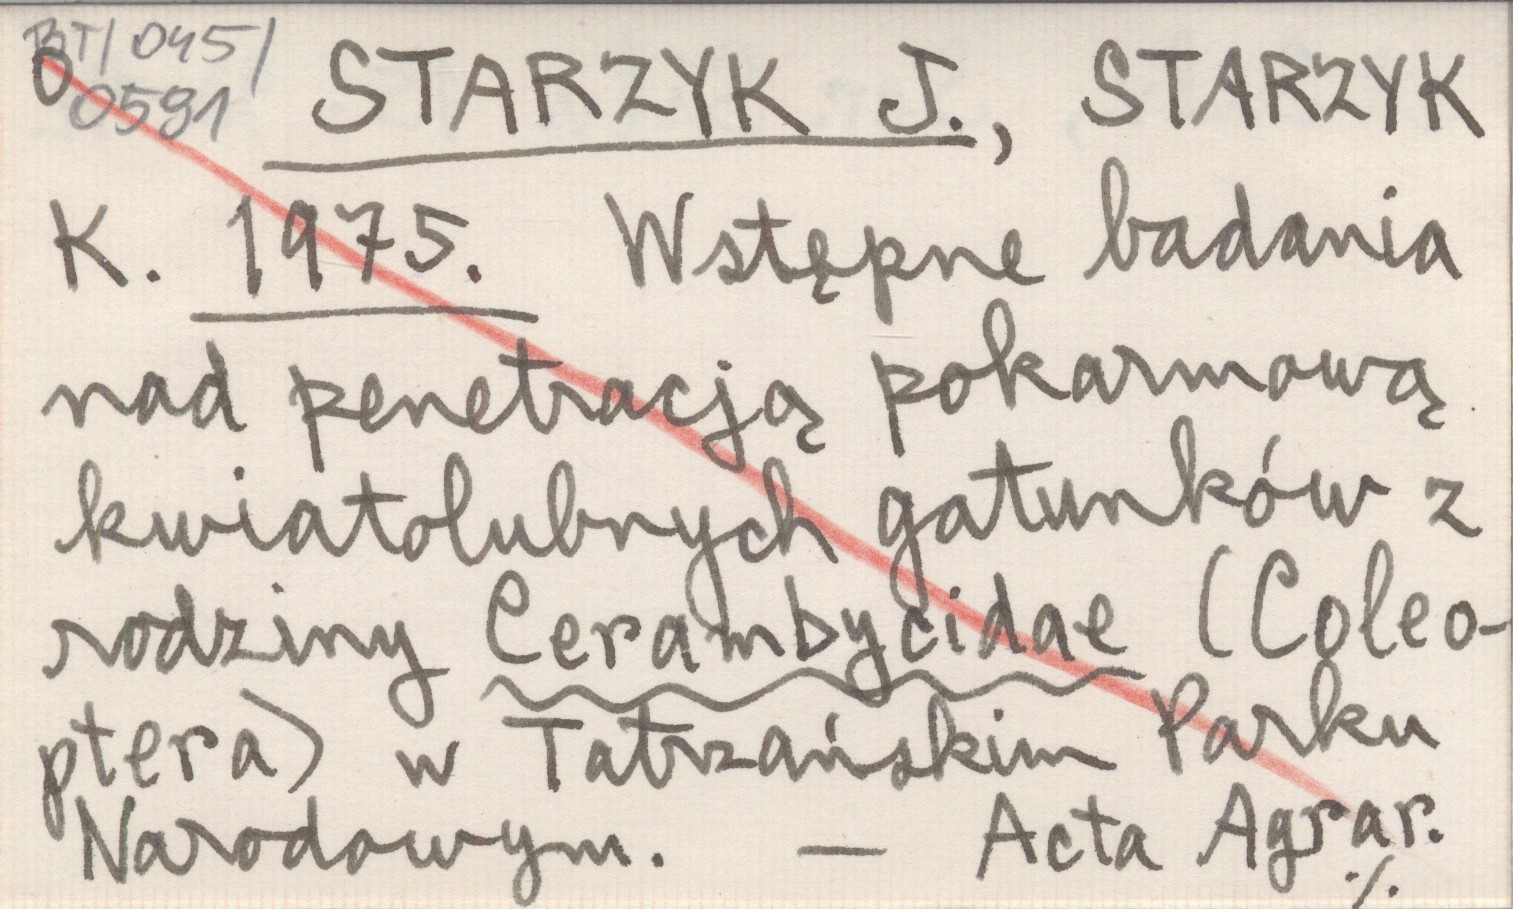 BT/045/
0591
O STARZYK J., STARZYK
K. 1975. Wstępne badania
nad penetracją pokarmową
kwiatolubnych gatunków z
rodziny Cerambycidae (Coleo-
ptera) w Tatrzańskim Parku
Narodowym. — Acta Agrar.
./.